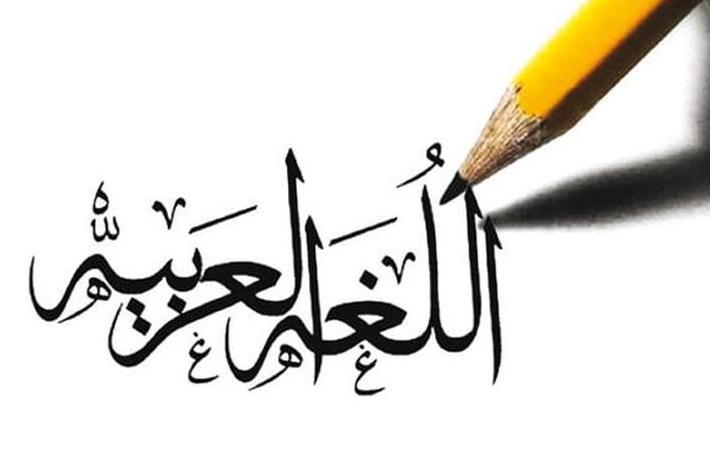 اللُّغَه العَربيّه